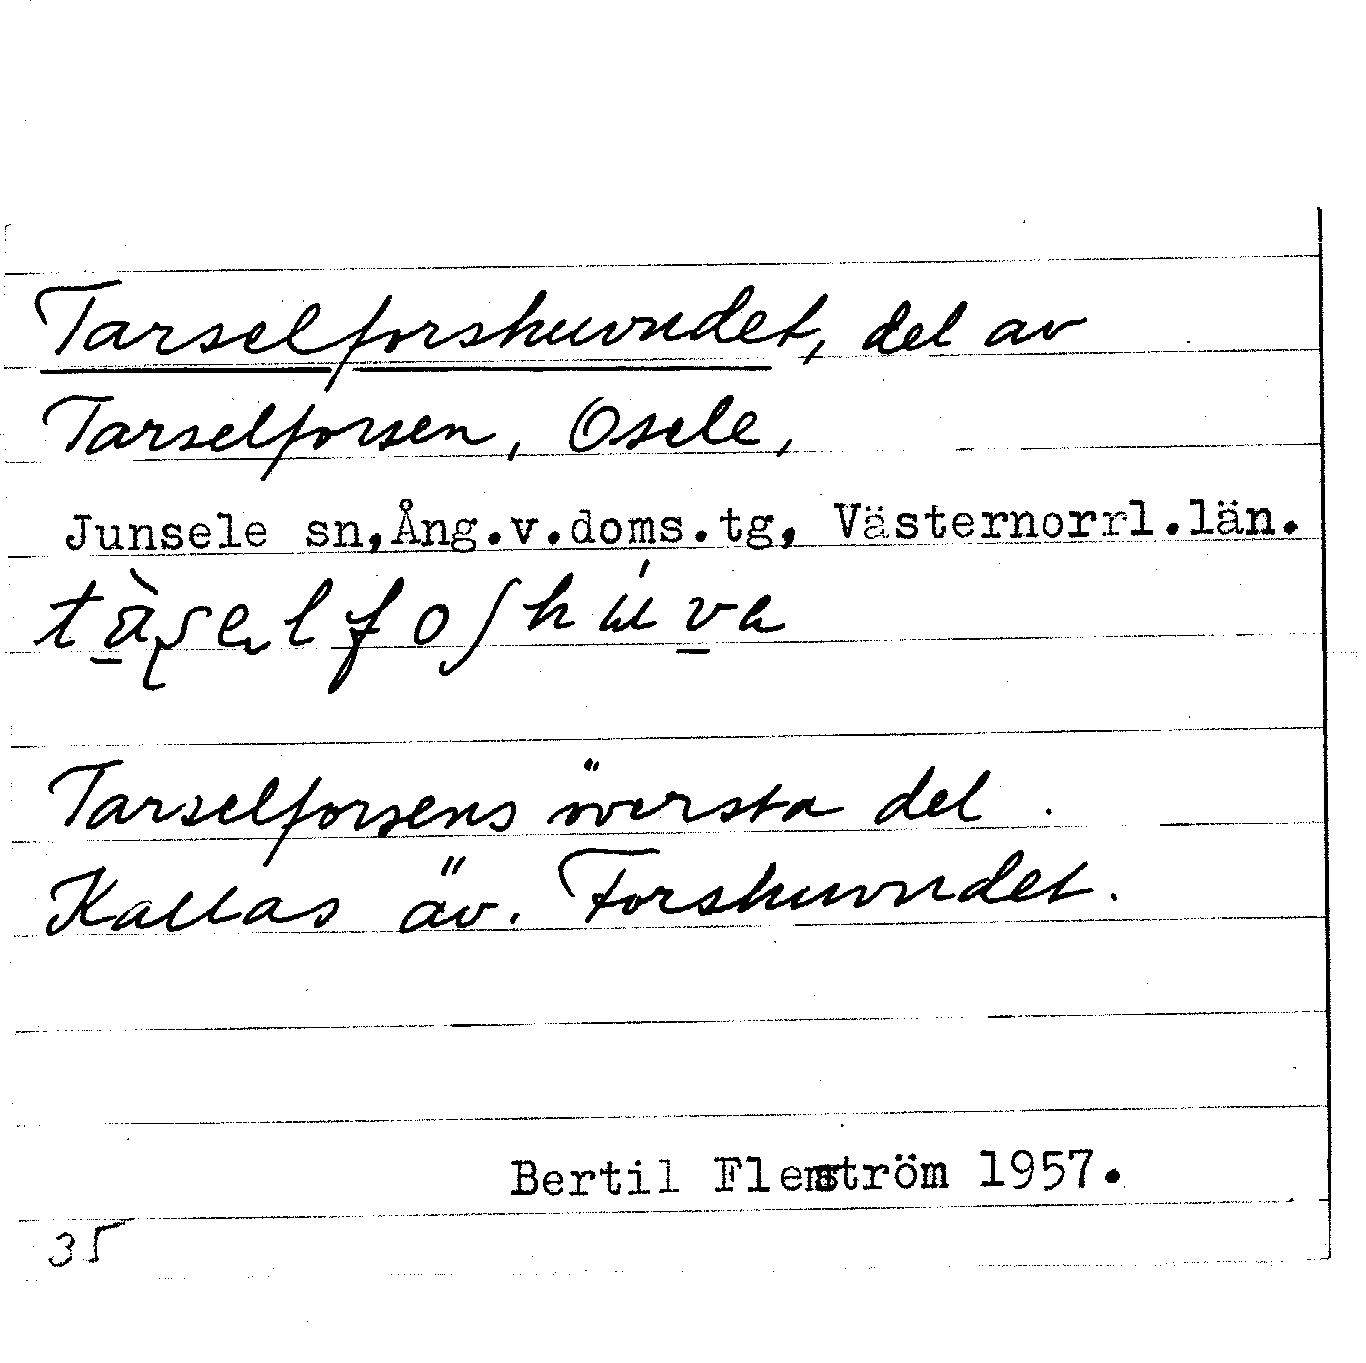 Tarselforshuvudet, del av
Tarselforsen, Osele,
Junsele sn,Ång.v.doms.tg, Västernorrl.län.
Tarselforsens översta del.
Kallas äv. Forshuvudet.
Bertil Flemström 1957.
35